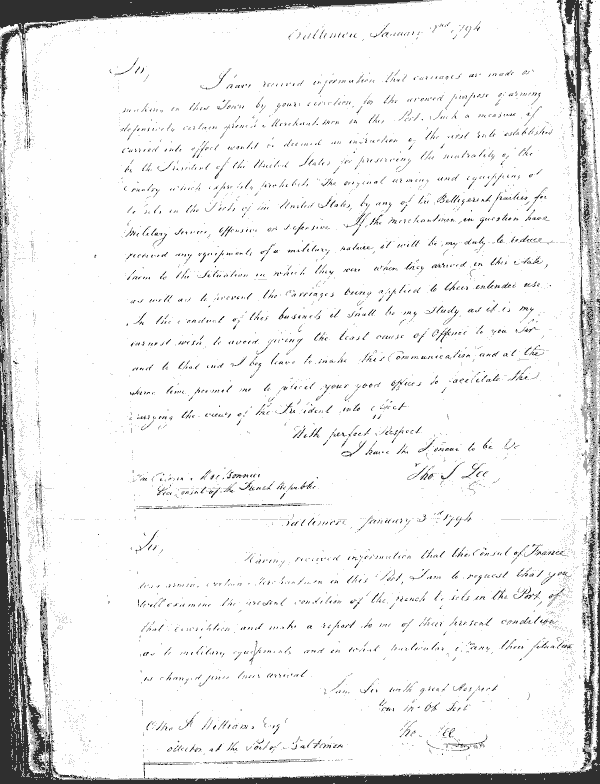 Baltimore, January 2nd 1794
Sir,
I have received information that carriages are made or
making in this Town by your direction, for the avowed purpose of arming
defensively certain french Merchantmen in this Port. Such a measure if
carried into effect would be deemed an infraction of the rule established
by the President of the United States for preserving the neutrality of the
Country which expressly prohibits "The original arming and equipping of
Vessels in the Ports of the United States, by any of the Belligerent parties, for
Military Service, offensive or defensive." If the merchantmen in question have
received any equipments of a military nature, it will be my duty to reduce
them to the Situation in which they were when they arrived in this State,
as well as to prevent the Carriages being applied to their intended use.
In the conduct of this business it shall be my Study as it is my
earnest wish to avoid giving the least cause of Offence to you Sir
and to that end I beg leave to make this Communication, and at the
same time permit me to solicit your good offices to facilitate the
carrying the views of the President into effect
With perfect Respect
I have the Honour to be &c
Tho. S. Lee
The Citizen
Vice Consul of the French Republic
Baltimore, January 3rd 1794
Sir,
Having received information that the Consul of France
was arming certain Merchantmen in this Port, I am to request that you
will examine the present condition of the french Vessels in the Port, of
that description, and make a report to me of their present condition
as to military equipments and in what particular, if any, their Situation
is changed since their arrival
I am Sir with great Respect
Your Mo. Ob. Servt
Tho. Lee
Otho H. Williams Esqr
Collector, at the Port of Baltimore